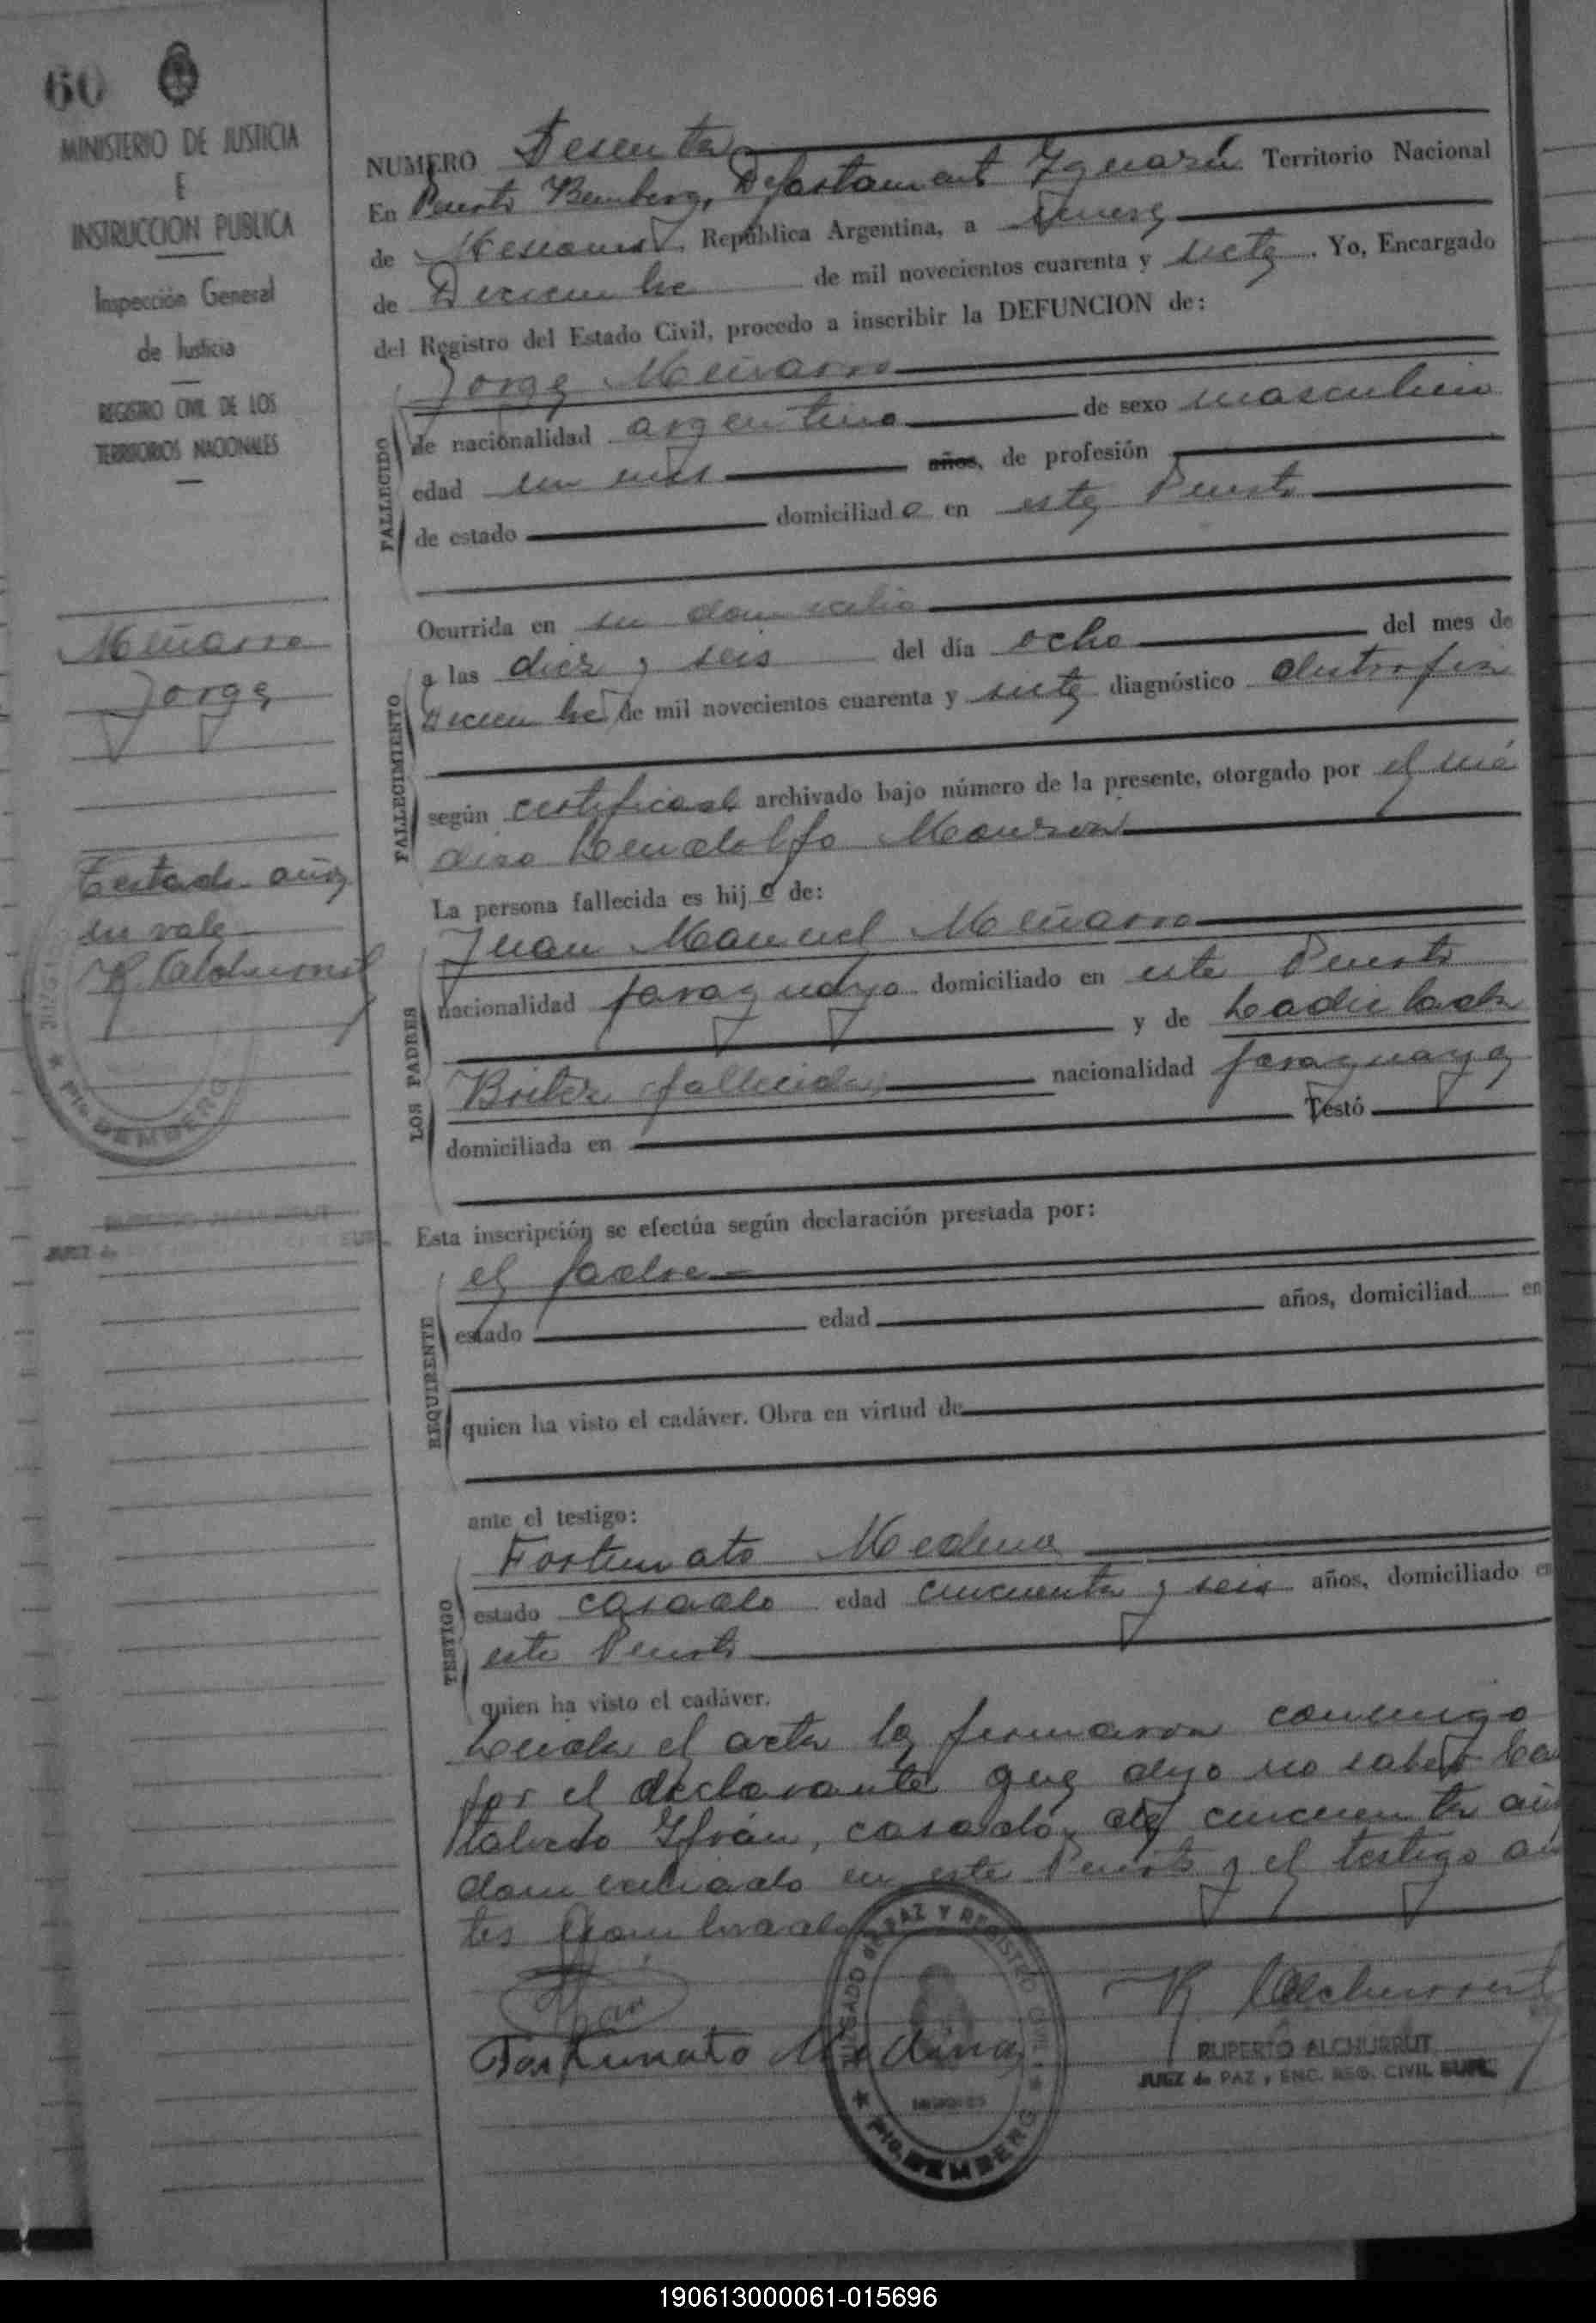 60
MINISTERIO DE JUSTICIA
E
INSTRUCCION PUBLICA
Inspección General
de Justicia
REGISTRO CIVIL DE LOS
TERRITORIOS NACIONALES
NUMERO Sesenta
En Puerto Bemberg, Departamento Iguazú Territorio Nacional
de Misiones, República Argentina, a nueve
de Diciembre de mil novecientos cuarenta y siete. Yo, Encargado
del Registro del Estado Civil, procedo a inscribir la DEFUNCION de:
Jorge
FALLECIDO
de nacionalidad argentino de sexo masculino
edad un mes años, de profesión
de estado domiciliado en este Puerto
Ocurrida en su domicilio
a las diez y seis del día ocho del mes de
FALLECIMIENTO
Diciembre de mil novecientos cuarenta y siete diagnóstico distrofia
según certificado archivado bajo número de la presente, otorgado por el mé
dico Lindolfo
La persona fallecida es hijo de:
Juan Manuel
LOS PADRES
nacionalidad paraguayo domiciliado en este Puerto
y de
Britez fallecida nacionalidad paraguaya
domiciliada en Testó
Esta inscripción se efectúa según declaración prestada por:
el padre
REQUIRENTE
estado edad años, domiciliad en
quien ha visto el cadáver. Obra en virtud de
ante el testigo:
Fortunato Medina
TESTIGO
estado casado edad cincuenta y seis años, domiciliado en
este Puerto
quien ha visto el cadáver.
Leida el acta la firmaron conmigo
por el declarante que dijo no saber
Ifrán, casado, de cincuenta
domiciliado en este Puerto y el testigo an
tes nombrado
Jorge
Testado años
no vale
R. Alchurrut
Fortunato Medina
R. Alchurrut
RUPERTO ALCHURRUT
JUEZ de PAZ y ENC. REG. CIVIL SUPL.
JUZGADO DE PAZ Y REGISTRO CIVIL
MISIONES
Pto. BEMBERG
Pto. BEMBERG
190613000061-015696